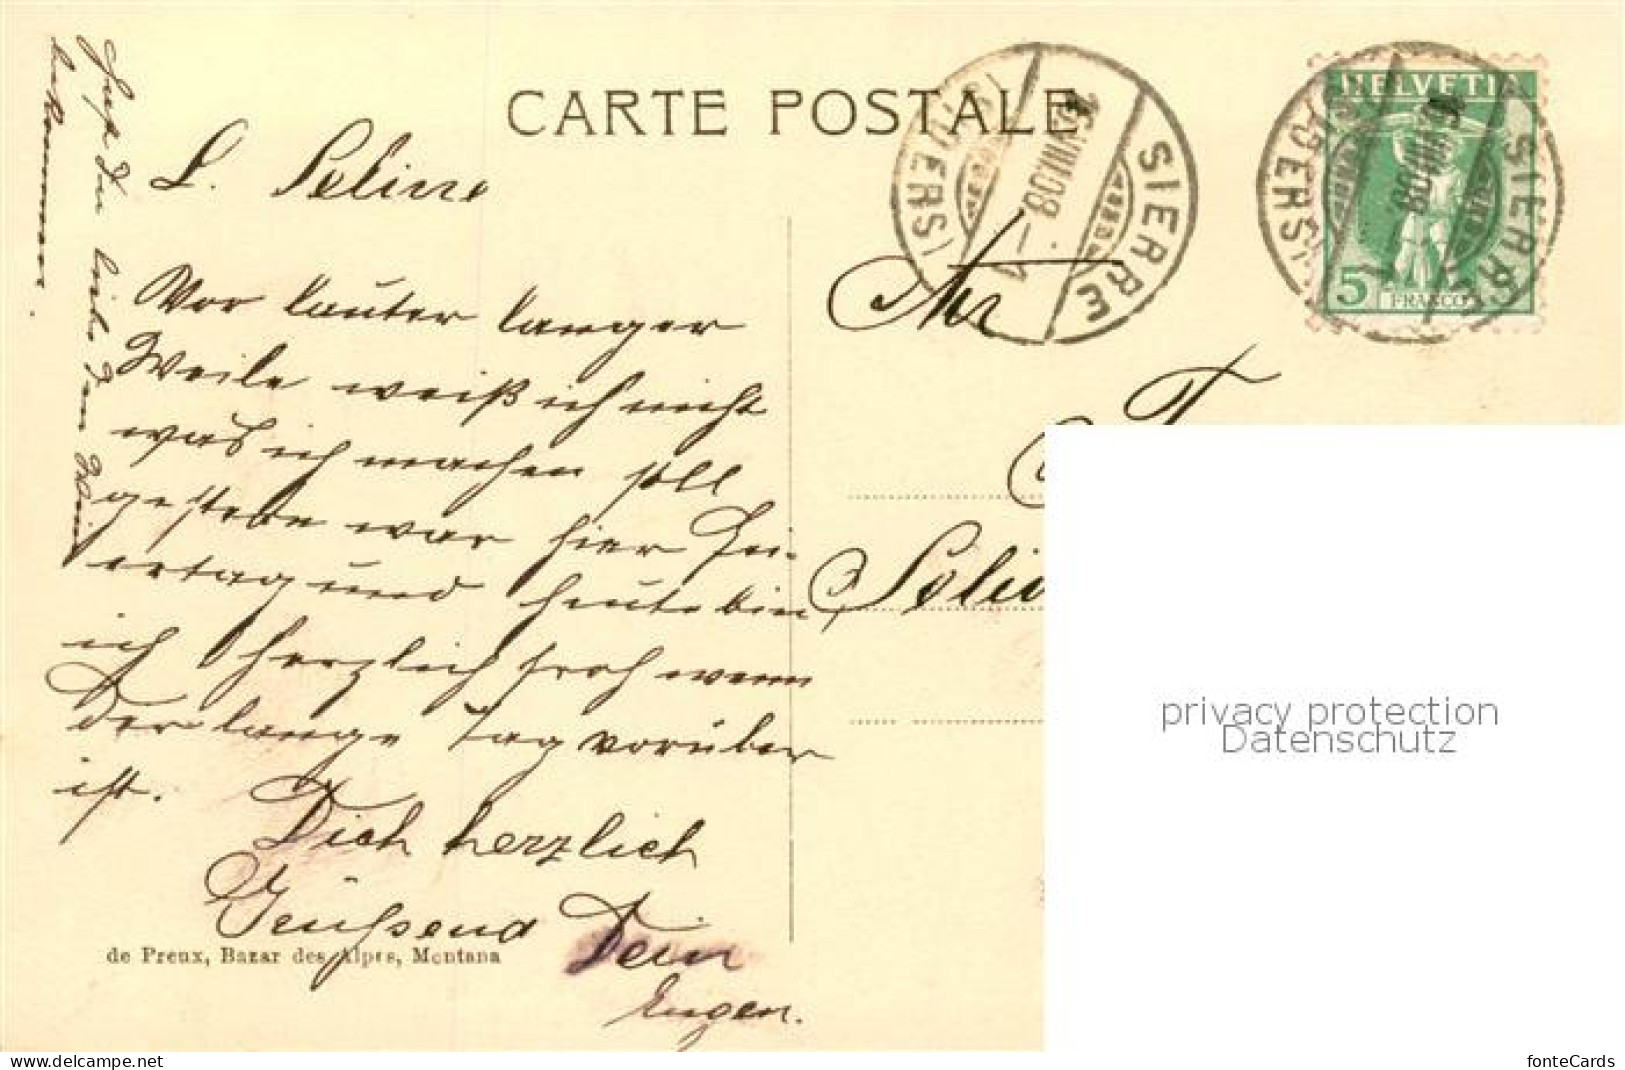 CARTE POSTALE
SIERRE
(SIDERS)
16.VIII.08.-1
HELVETIA
5
FRANCO
SIERRE
(SIDERS)
16.VIII.08
L. Seline
Vor lauter langer
Weile weiß ich nicht
was ich machen soll
gestern war hier Fei-
ertag und heute bin
ich herzlich froh wenn
der lange Tag vorüber
ist.
Dich herzlich
Grüssend Dein
Eugen.
Hast Du
bekommen
de Preux, Bazar des Alpes, Montana
privacy protection
Datenschutz
fonteCards